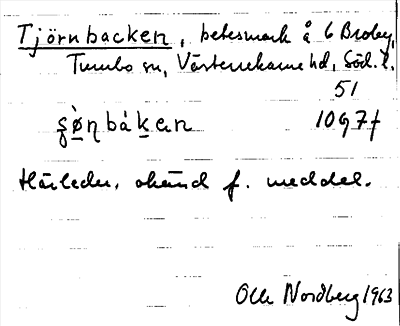 Tjörnbacken, betesmark å 6 Broby,
Tumbo sn, Västerrekarne hd, Söd. l.
51
10G7f
Härleden. okänd f. meddel.
Olle Nordberg 1963